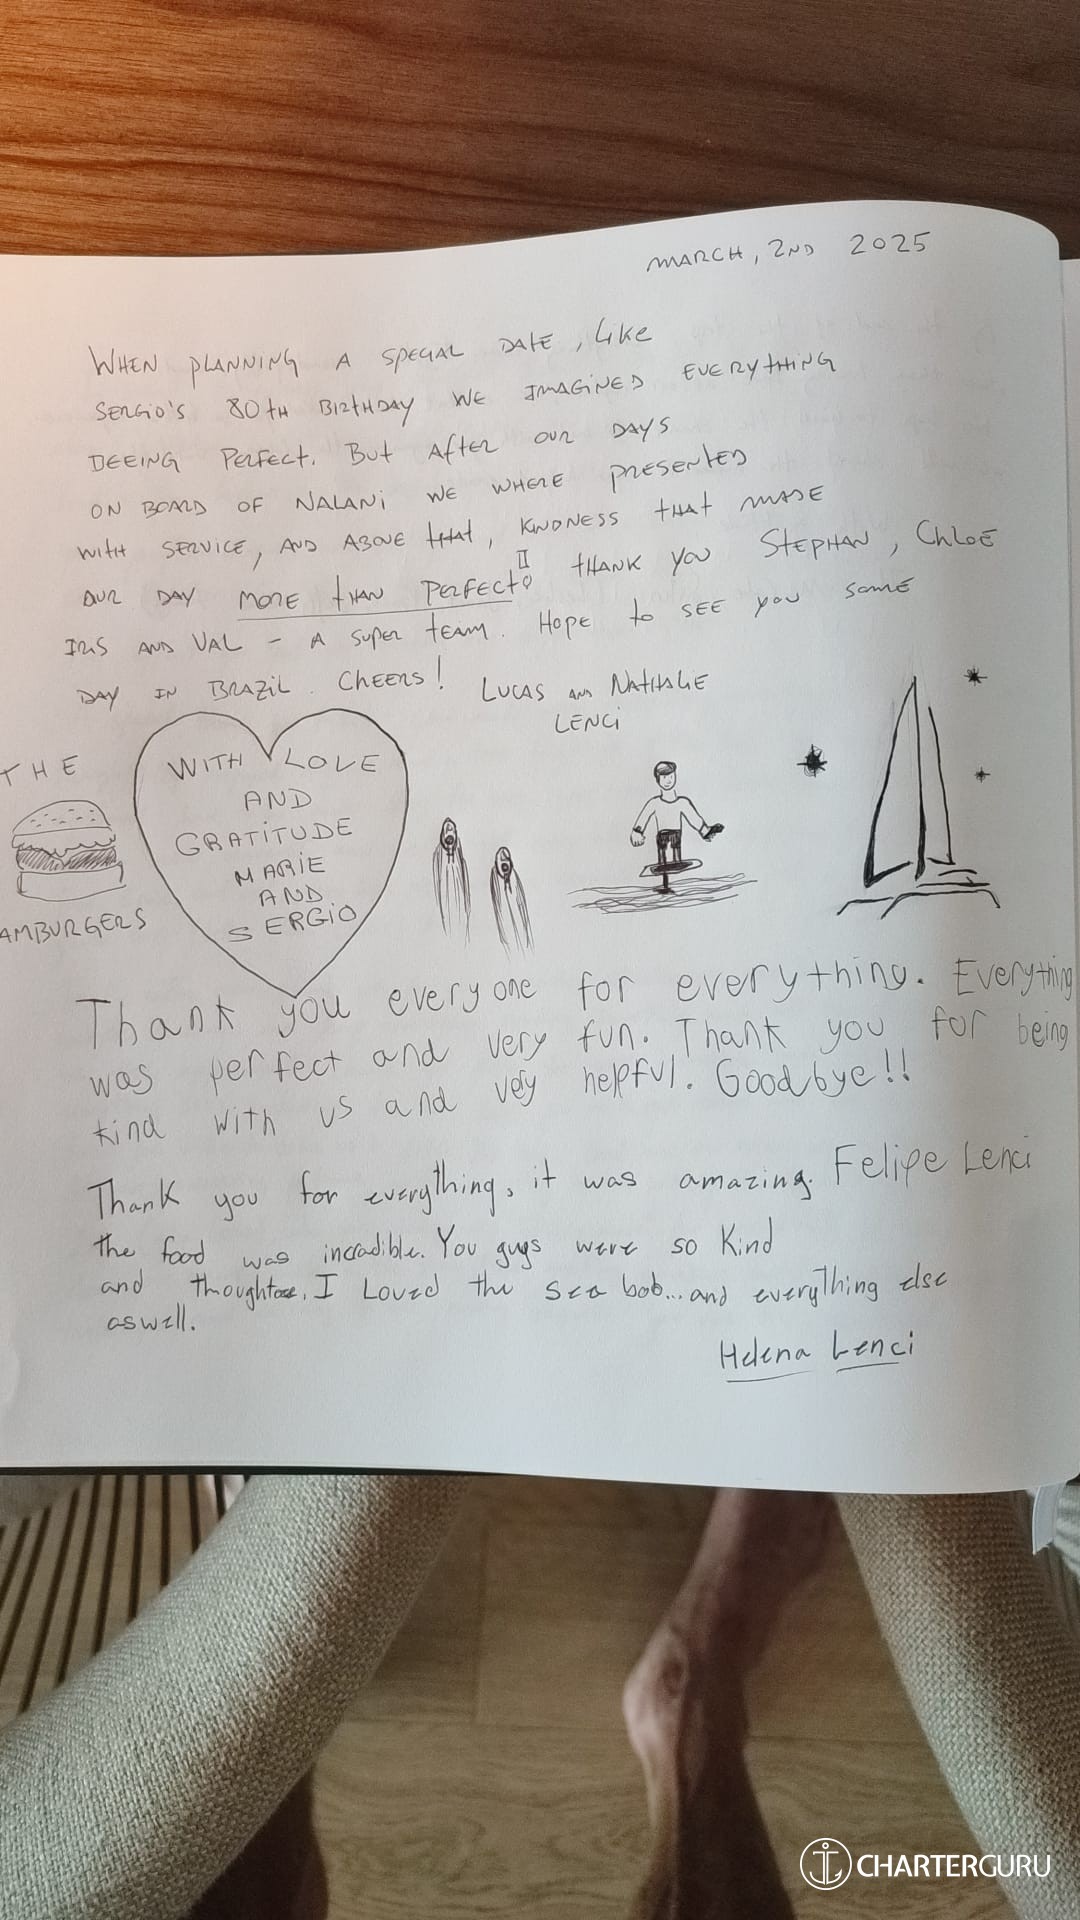 MARCH, 2ND 2025
WHEN PLANNING A SPECIAL DATE, LIKE
SERGIO'S 80TH BIRTHDAY WE IMAGINED EVERYTHING
BEEING PERFECT. BUT AFTER OUR DAYS
ON BOARD OF NALANI WE WHERE PRESENTED
WITH SERVICE, AND ABOVE THAT, KINDNESS THAT MADE
OUR DAY MORE THAN PERFECT!! THANK YOU STEPHAN, CHLOE
IRIS AND VAL - A SUPER TEAM. HOPE TO SEE YOU SOME
DAY IN BRAZIL. CHEERS! LUCAS AND NATHALIE
LENCI
THE
AMBURGERS
WITH LOVE
AND
GRATITUDE
MARIE
AND
SERGIO
Thank you everyone for everything. Everything
was perfect and very fun. Thank you for being
kind with us and very helpful. Goodbye!!
Felipe Lenci
Thank you for everything, it was amazing.
the food was incradible. You guys were so kind
and I Loved the sea bob... and everything else
aswell.
Helena Lenci
CHARTERGURU